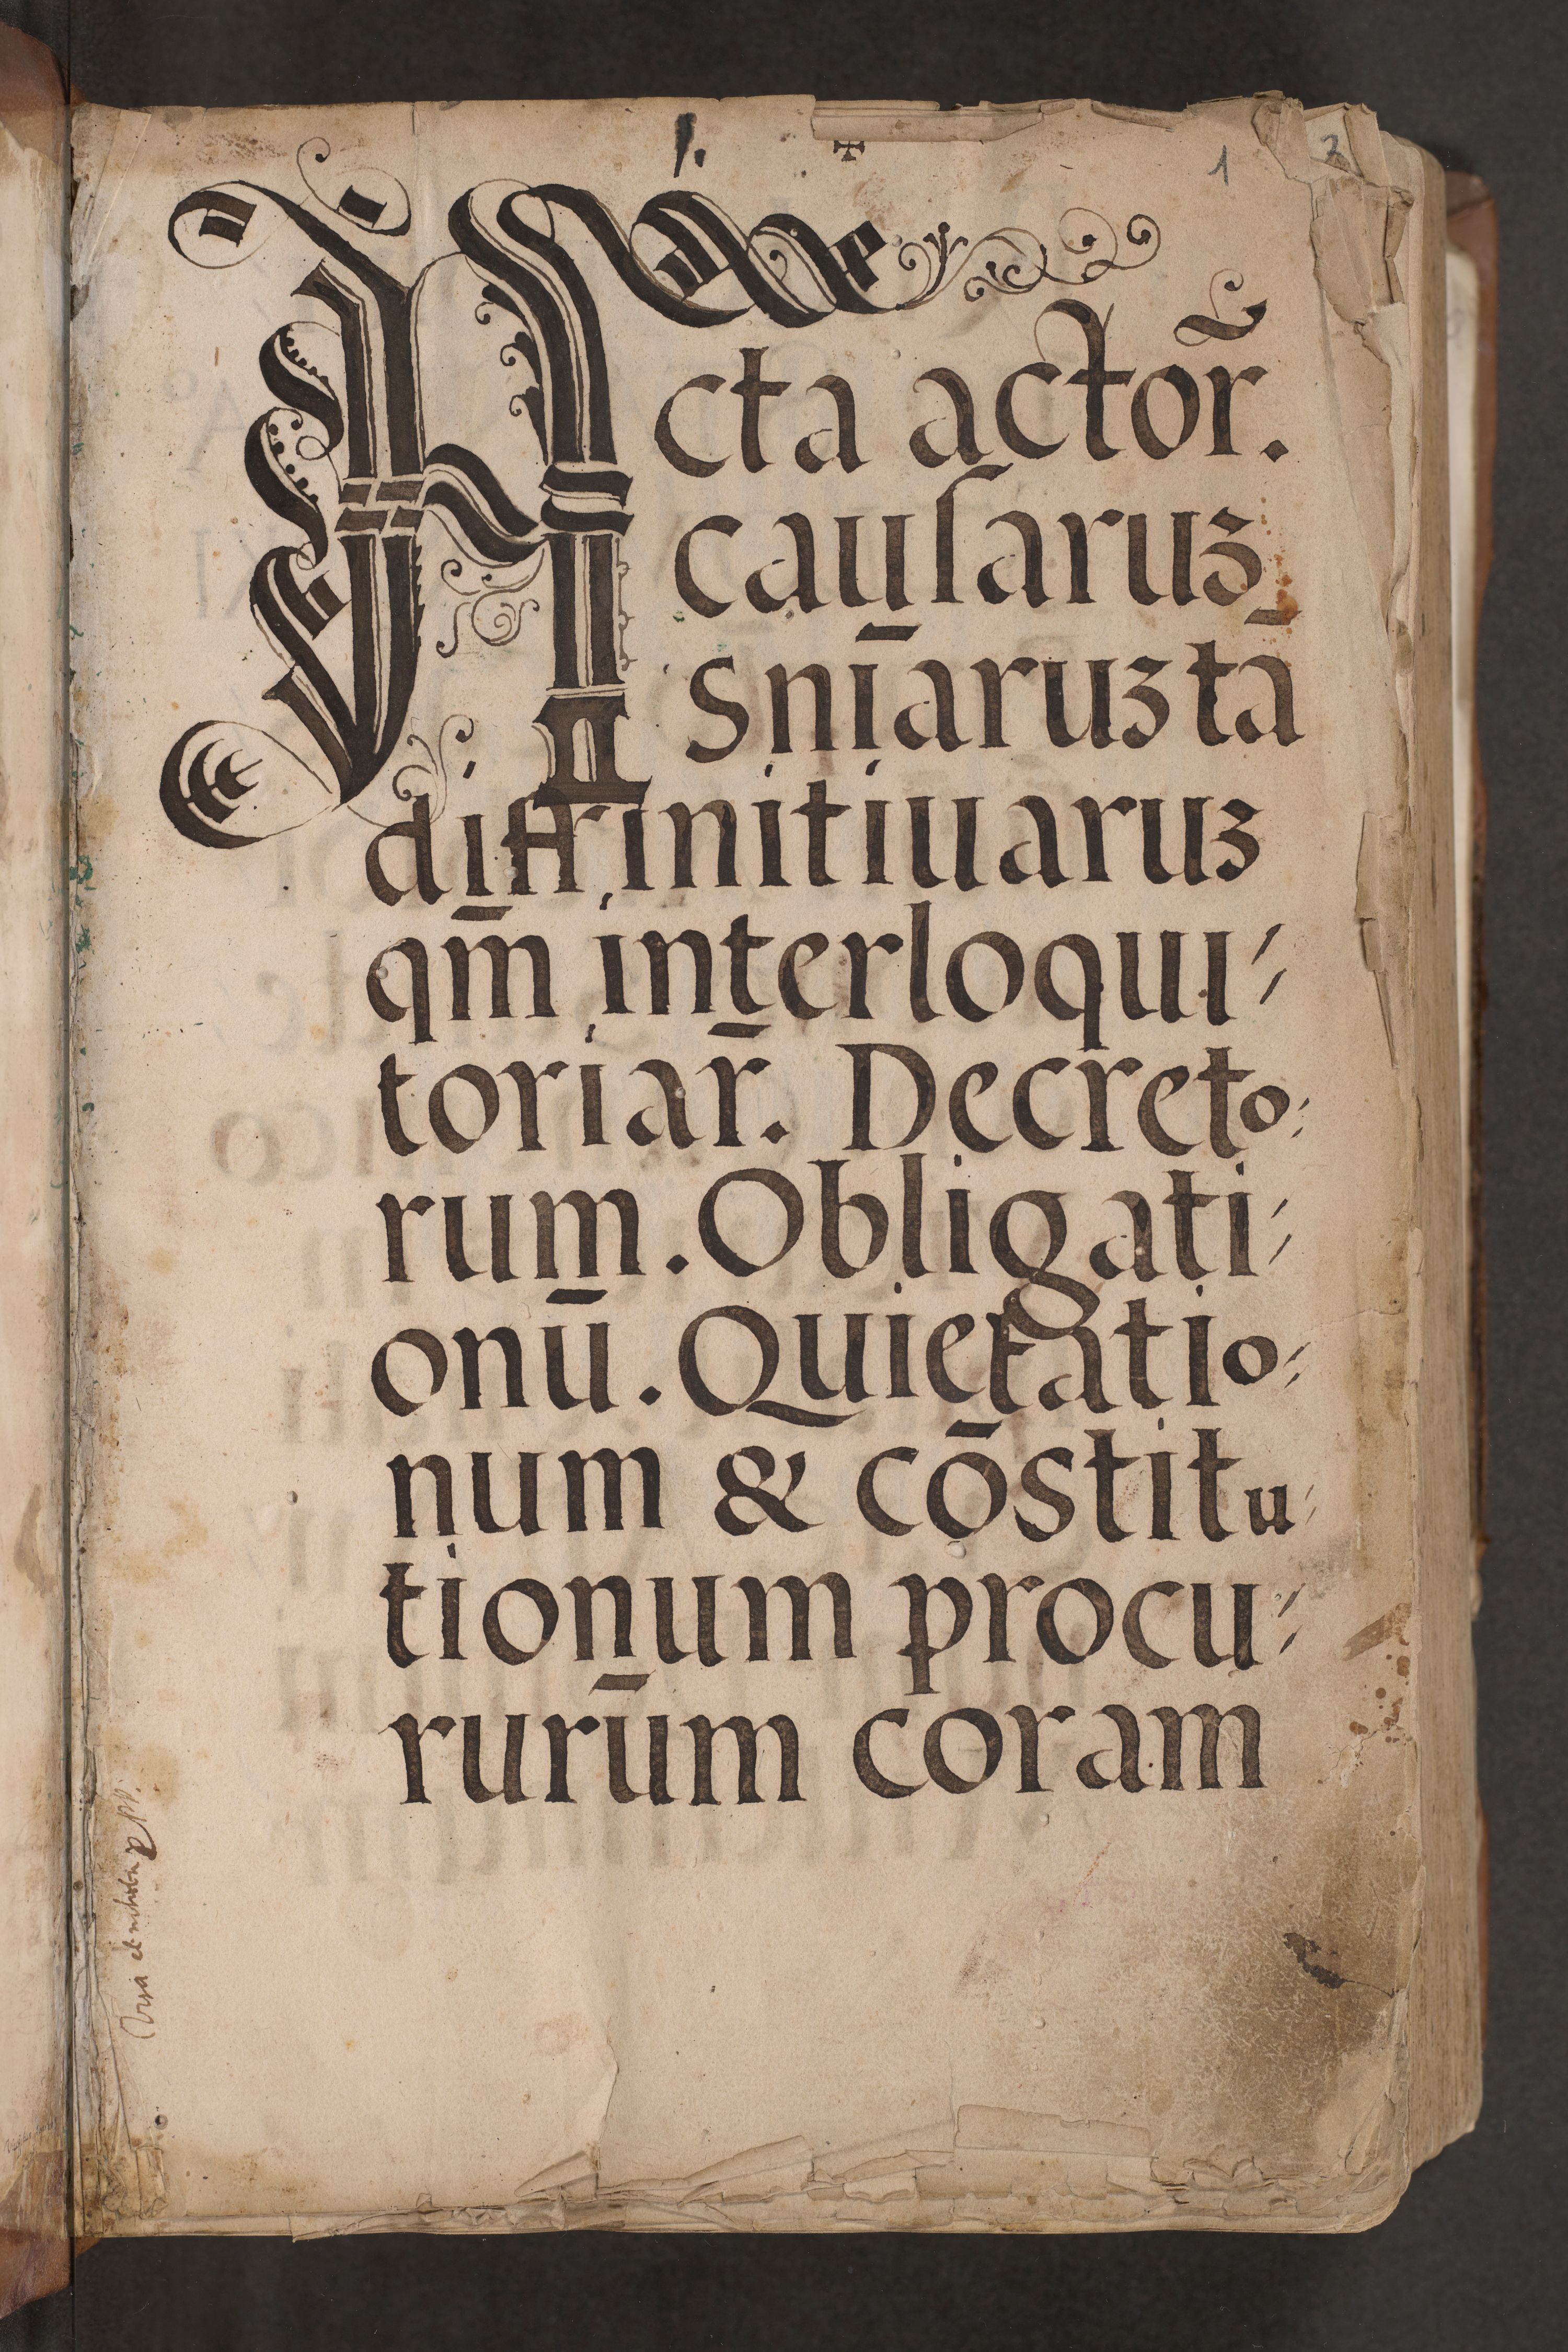 1. ✠ 1 2
Acta actor̃.
cauſaruꝫ
snīaruꝫ tā
diffinitiuaruꝫ
qm̄ interloqui⸗
toriar̄. Decreto⸗
rum. Obligati⸗
onū. Quietatio⸗
num & cōstitu⸗
tionum procu⸗
rurūm coram